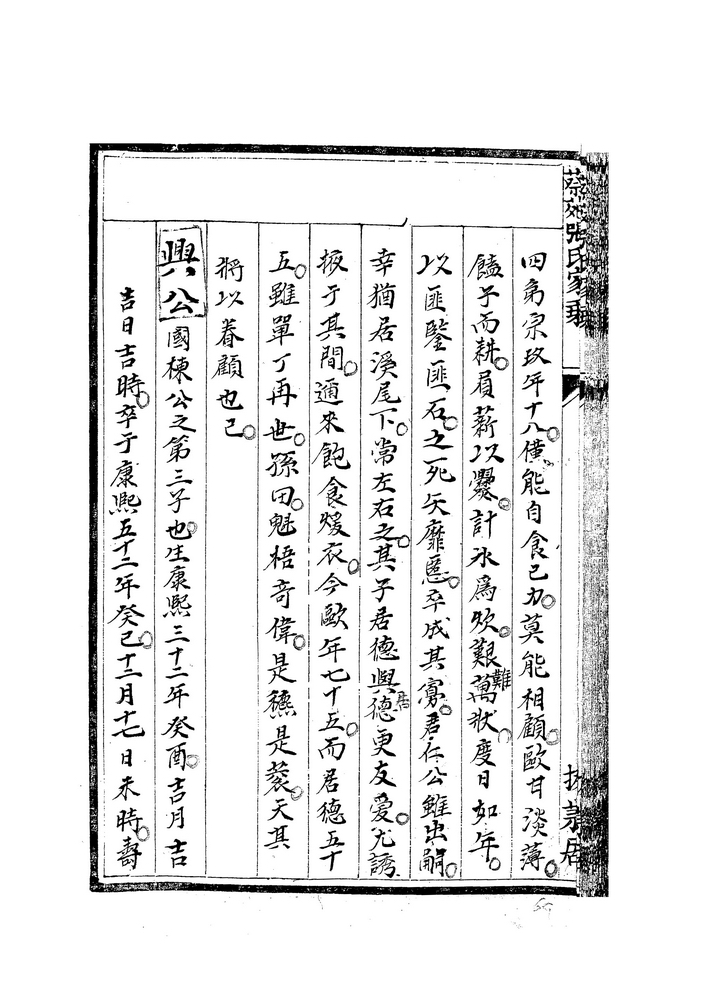 四弟宗玫年十八僅能自食己力。莫能相顧。歐甘淡薄。
饁予而耕。員薪以爨。計米為炊。艱難萬狀。度日如年。
以匪鑒匪石。之死矢靡慝。卒成其寡。君仁公雖出嗣。
幸猶居溪尾下。常左右之。其子居德與居德更友愛。尤誘
掖于其間。邇來飽食煖衣。今歐年七十五。而居德五十
五。雖單丁再世。孫田魁梧奇偉。是穮是蓘。天其
將以眷顧也已。
興公國棟公之第三子也。生康熙三十二年癸酉吉月吉
吉日吉時。卒于康熙五十二年癸巳十二月十七日未時。壽
張氏家乘
居